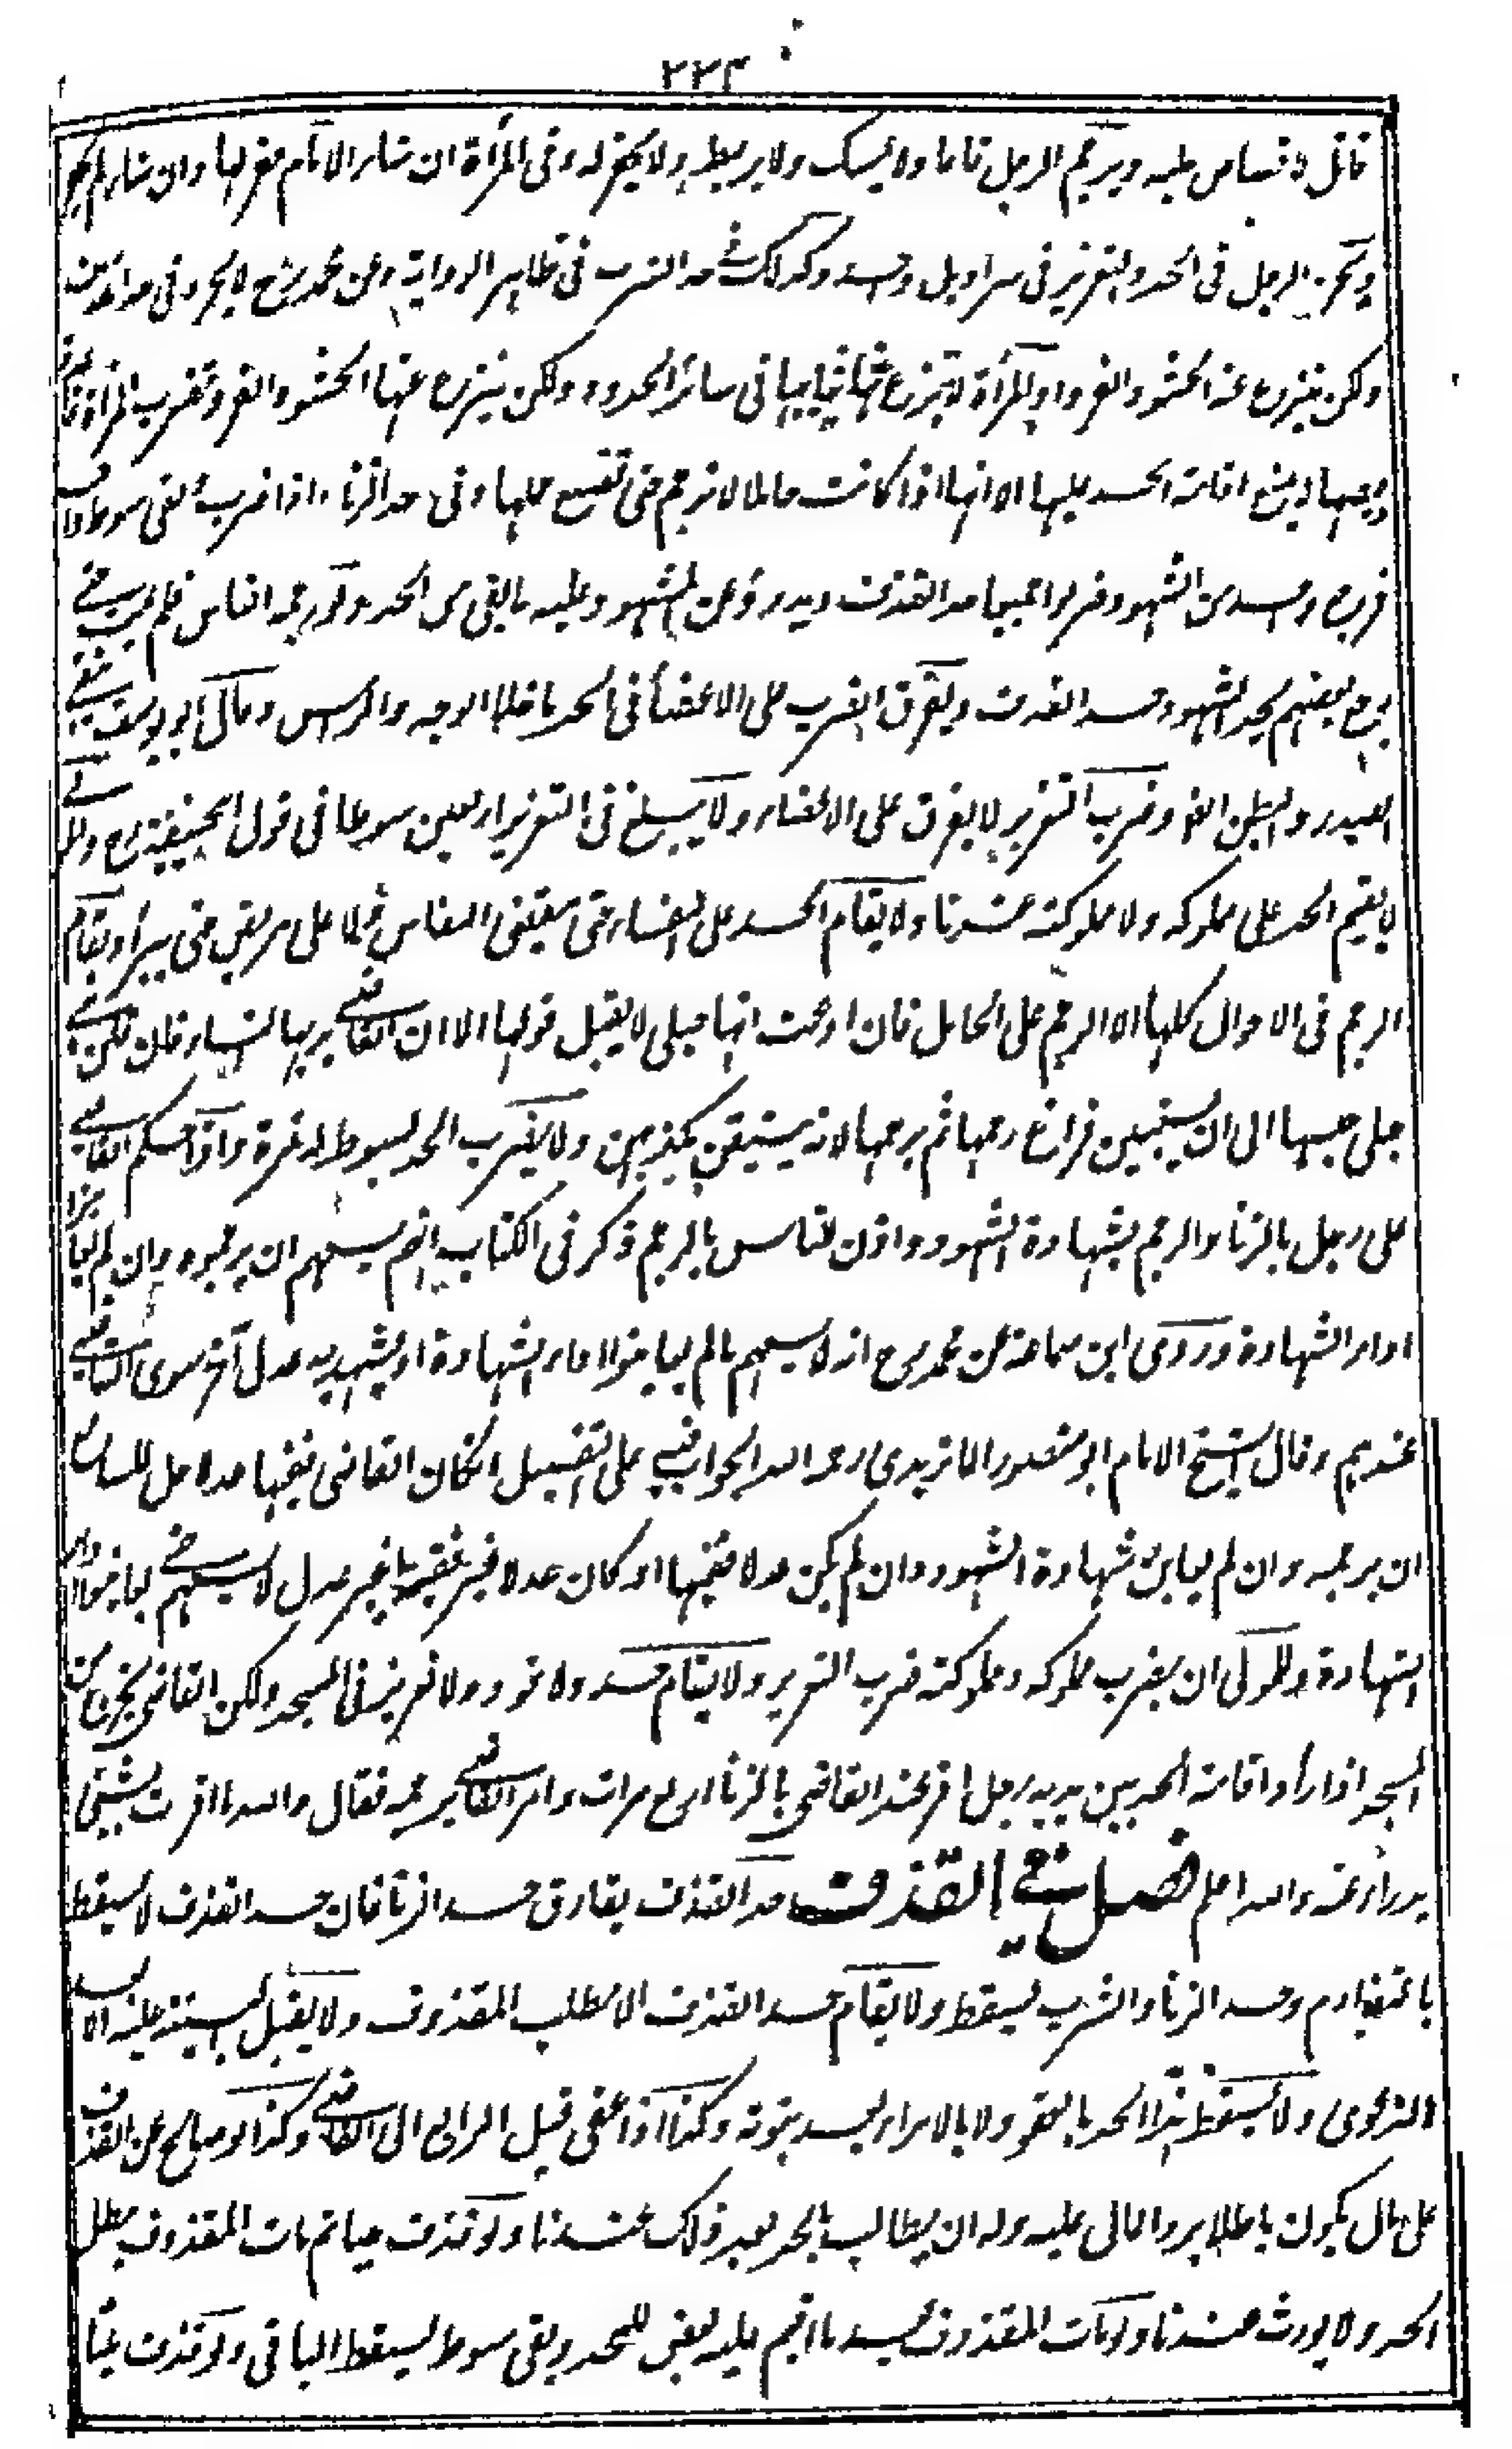 ٢٢٣
قاتل لا قصاص عليه ويرجم الرجل قائما ولا يمسك ولا يربط ولا يحفر له وفى المرأة ان شاء الامام حفر لها وان شاء لم يحفر
ويجرد الرجل فى الحد والتعزير فى سراويل واحد وكذلك فى حد الشرب فى ظاهر الرواية وعن محمد رح لا يجرد فى حد
ولكن ينزع عنه الحشو والفرو والمرأة لا ينزع عنها ثيابها فى سائر الحدود ولكن ينزع عنها الحشو والفرو وتضرب المرأة
اقامة الحد عليها الا انها اذا كانت حاملا لا ترجم حتى تضع حملها وفى حد الزنا اذا ضرب وبقى سوط
فرجع واحد من الشهود ضربوا جميعا حد القذف ويدرؤ عن المشهود عليه ما بقى من الحد ولو رجمه الناس فلم يمت حتى
رجع بعضهم يحد الشهود حد القذف ويفرق الضرب على الاعضاء فى الحد ما خلا الوجه والراس وقال ابو يوسف يتقى
الصدر والبطن ايضا وضرب التعزير لا يفرق على الاعضاء ولا يبلغ فى التعزير اربعين سوطا فى قول ابيحنيفة رح والمولى
لا يقيم الحد على مملوكه ولا مملوكته عندنا ولا يقام الحد على النفساء حتى ينقضى النفاس ولا على مريض حتى يبرأ ويقام
الرجم فى الاحوال كلها الا الرجم على الحامل فان ادعت انها حبلى لا يقبل قولها الا ان القاضى يريها النساء فان قلن هى
حبلى حبسها الى ان يستبين فراغ رحمها ثم يرجمها لانه يستيقن بكذبهن ولا يضرب الحد بسوط له ثمرة واذا حكم القاضى
على رجل بالزنا والرجم بشهادة الشهود واذن للناس بالرجم ذكر فى الكتاب انه يسعهم ان يرجموه وان لم يعاينوا
اداء الشهادة وروى ابن سماعة عن محمد رح انه لا يسعهم ما لم يعاينوا اداء الشهادة او يشهد به عدل آخر سوى القاضى
عندهم وقال الشيخ الامام ابو منصور الماتريدى رحمه الله الجواب فيه على التفصيل ان كان القاضى فقيها عدلا حل للناس
ان يرجمه وان لم يعاين شهادة الشهود وان لم يكن عدلا فقيها او كان عدلا غير فقيه او فقيها غير عدل لا يسعهم حتى يعاينوا اداء
الشهادة وللمولى ان يضرب مملوكه ومملوكته ضرب التعزير ولا يقام حد ولا قود ولا تعزير فى المسجد ولكن القاضى يخرج من
المسجد اذا اراد اقامة الحد بين يديه رجل اقر عند القاضى بالزنا اربع مرات وامر القاضى برجمه فقال والله ما اقررت بشئ
يدرأ عنه والله اعلم فصل فى القذف حد القذف يفارق حد الزنا فان حد القذف لا يسقط
بالتقادم وحد الزنا والشرب يسقط ولا يقام حد القذف الا بطلب المقذوف ولا يقبل البينة عليه الا بعد
الدعوى ولا يسقط هذا الحد بالعفو ولا بالابراء بعد ثبوته وكذا اذا عفى قبل الرافع الى القاضى وكذا لو صالح عن القذف
على مال يكون باطلا يرد المال عليه وله ان يطالب بالحد بعد ذلك عندنا ولو قذف حيا ثم مات المقذوف بطل
الحد ولا يورث عندنا ولو مات المقذوف بعد ما اقيم عليه بعض الحد وبقى سوط يسقط الباقى ولو قذف ميتا